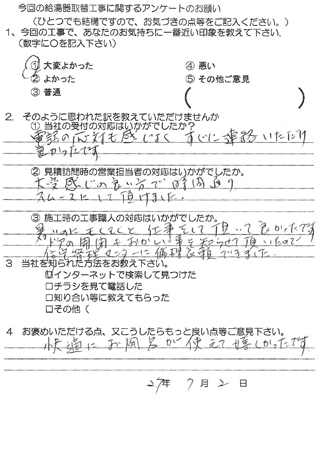 今回の給湯器取替工事に関するアンケートのお願い
(ひとつでも結構ですので、お気づきの点等をご記入ください。)
1、今回の工事で、あなたのお気持ちに一番近い印象を教えて下さい。
(数字に〇を記入下さい)
① 大変よかった ④ 悪い
② よかった ⑤ その他ご意見
③ 普通 ( )
2. そのように思われた訳を教えていただけませんか
① 当社の受付の対応はいかがでしたか?
電話の応対も感じよく すぐに連絡いただけ
良かったです
② 見積訪問時の営業担当者の対応はいかがでしたか。
大変感じの良い方で時間通り
スムーズにして頂けました.
③ 施工時の工事職人の対応はいかがでしたか。
暑いのにもくもくと仕事をして頂いて良かったです
ドアの周囲もおかしい事を知らせて頂いたので
住宅管理センターに修理依頼できました.
3 当社を知られた方法をお教え下さい。
☑インターネットで検索して見つけた
□チラシを見て電話した
□知り合い等に教えてもらった
□その他(
4 お褒めいただける点、又こうしたらもっと良い点等ご意見下さい。
快適にお風呂が使えて嬉しかったです
27年 7月 2日